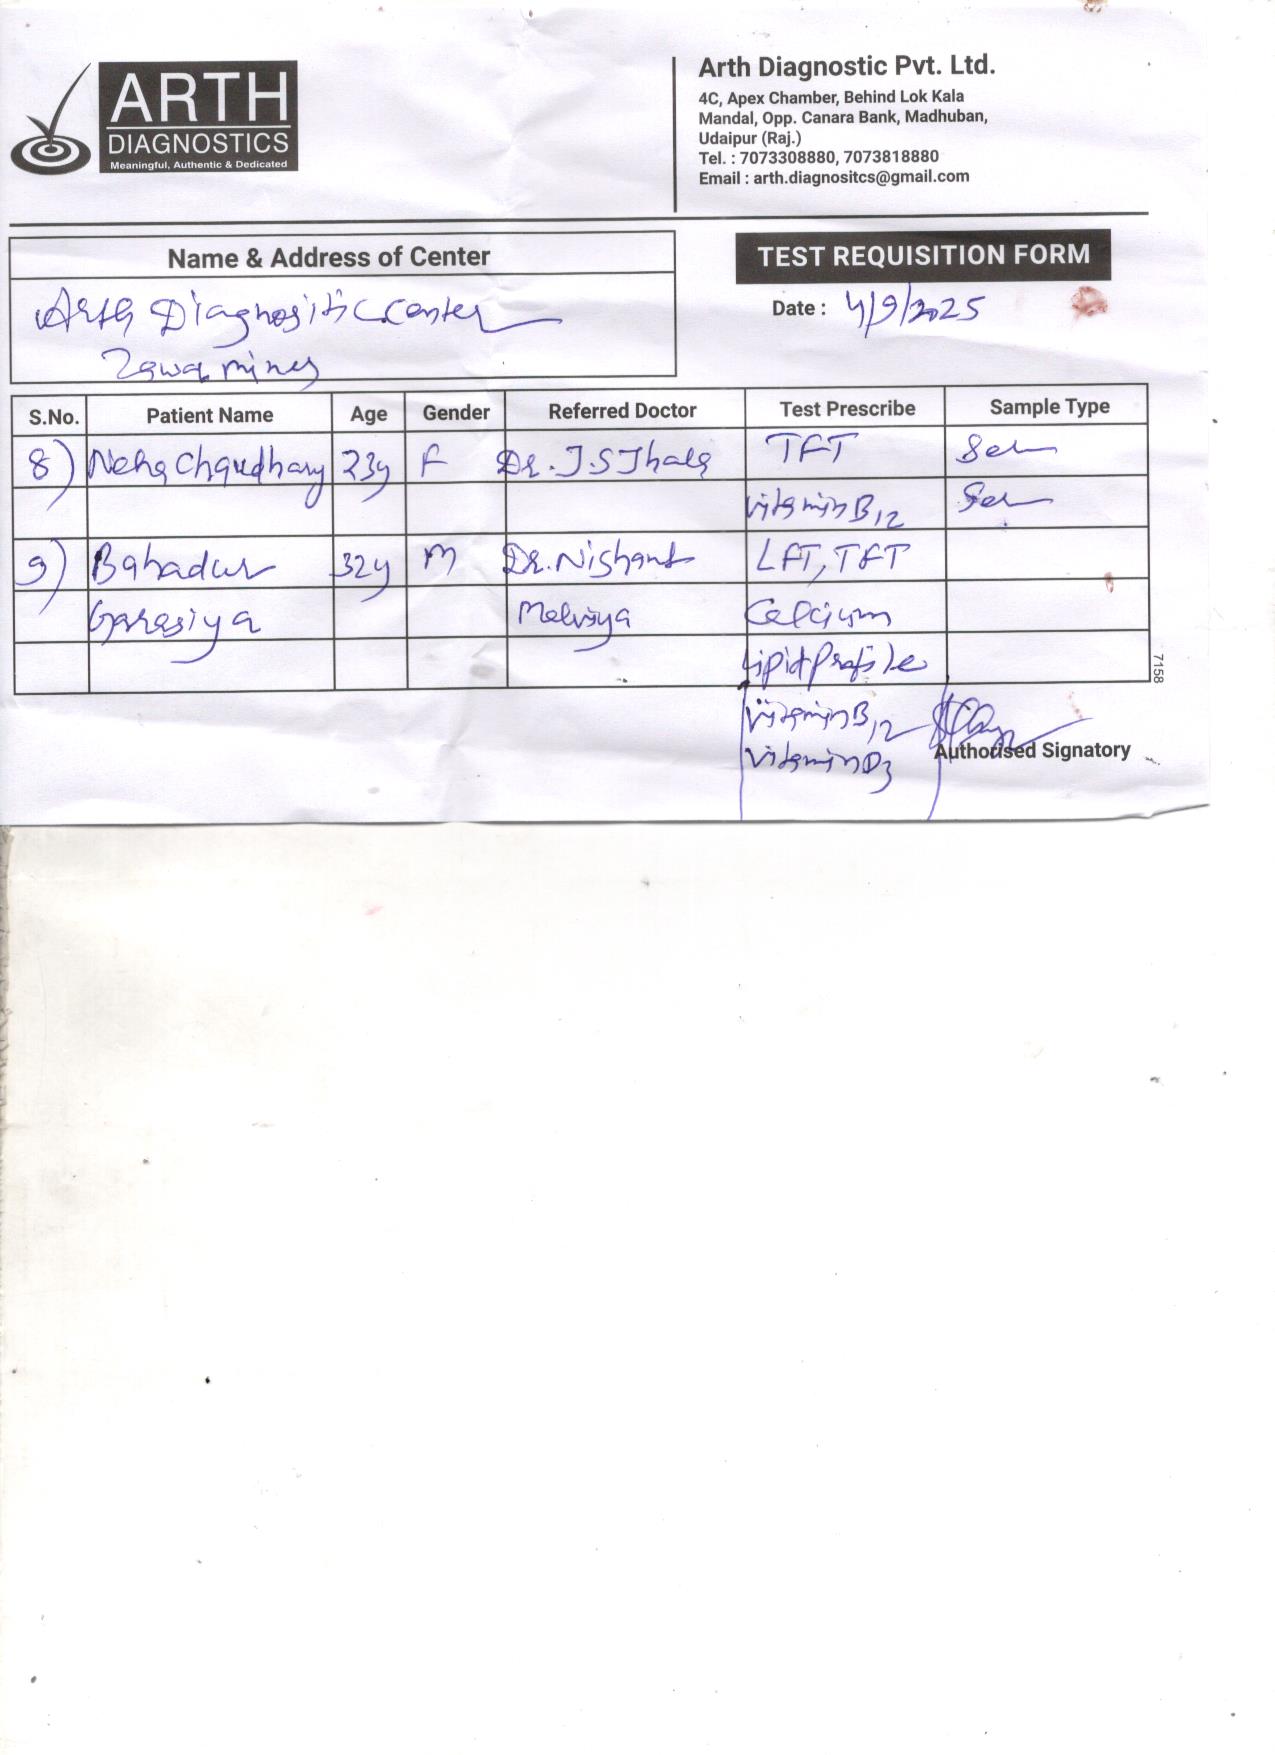 ARTH
DIAGNOSTICS
Meaningful, Authentic & Dedicated
Arth Diagnostic Pvt. Ltd.
4C, Apex Chamber, Behind Lok Kala
Mandal, Opp. Canara Bank, Madhuban,
Udaipur (Raj.)
Tel. : 7073308880, 7073818880
Email : arth.diagnositcs@gmail.com
Name & Address of Center
Arth Diagnositic Center
Zawar mines
TEST REQUISITION FORM
Date : 4/9/2025
S.No. Patient Name Age Gender Referred Doctor Test Prescribe Sample Type
8) Neha Chaudhary 23y F Dr. J.S Jhala TFT
Vitamin B12
9) Bahadur 32y M Dr. Nishant LFT, TFT
Garasiya Calcium
Lipid Profile
7158
Vitamin B12
Vitamin D3
Authorised Signatory